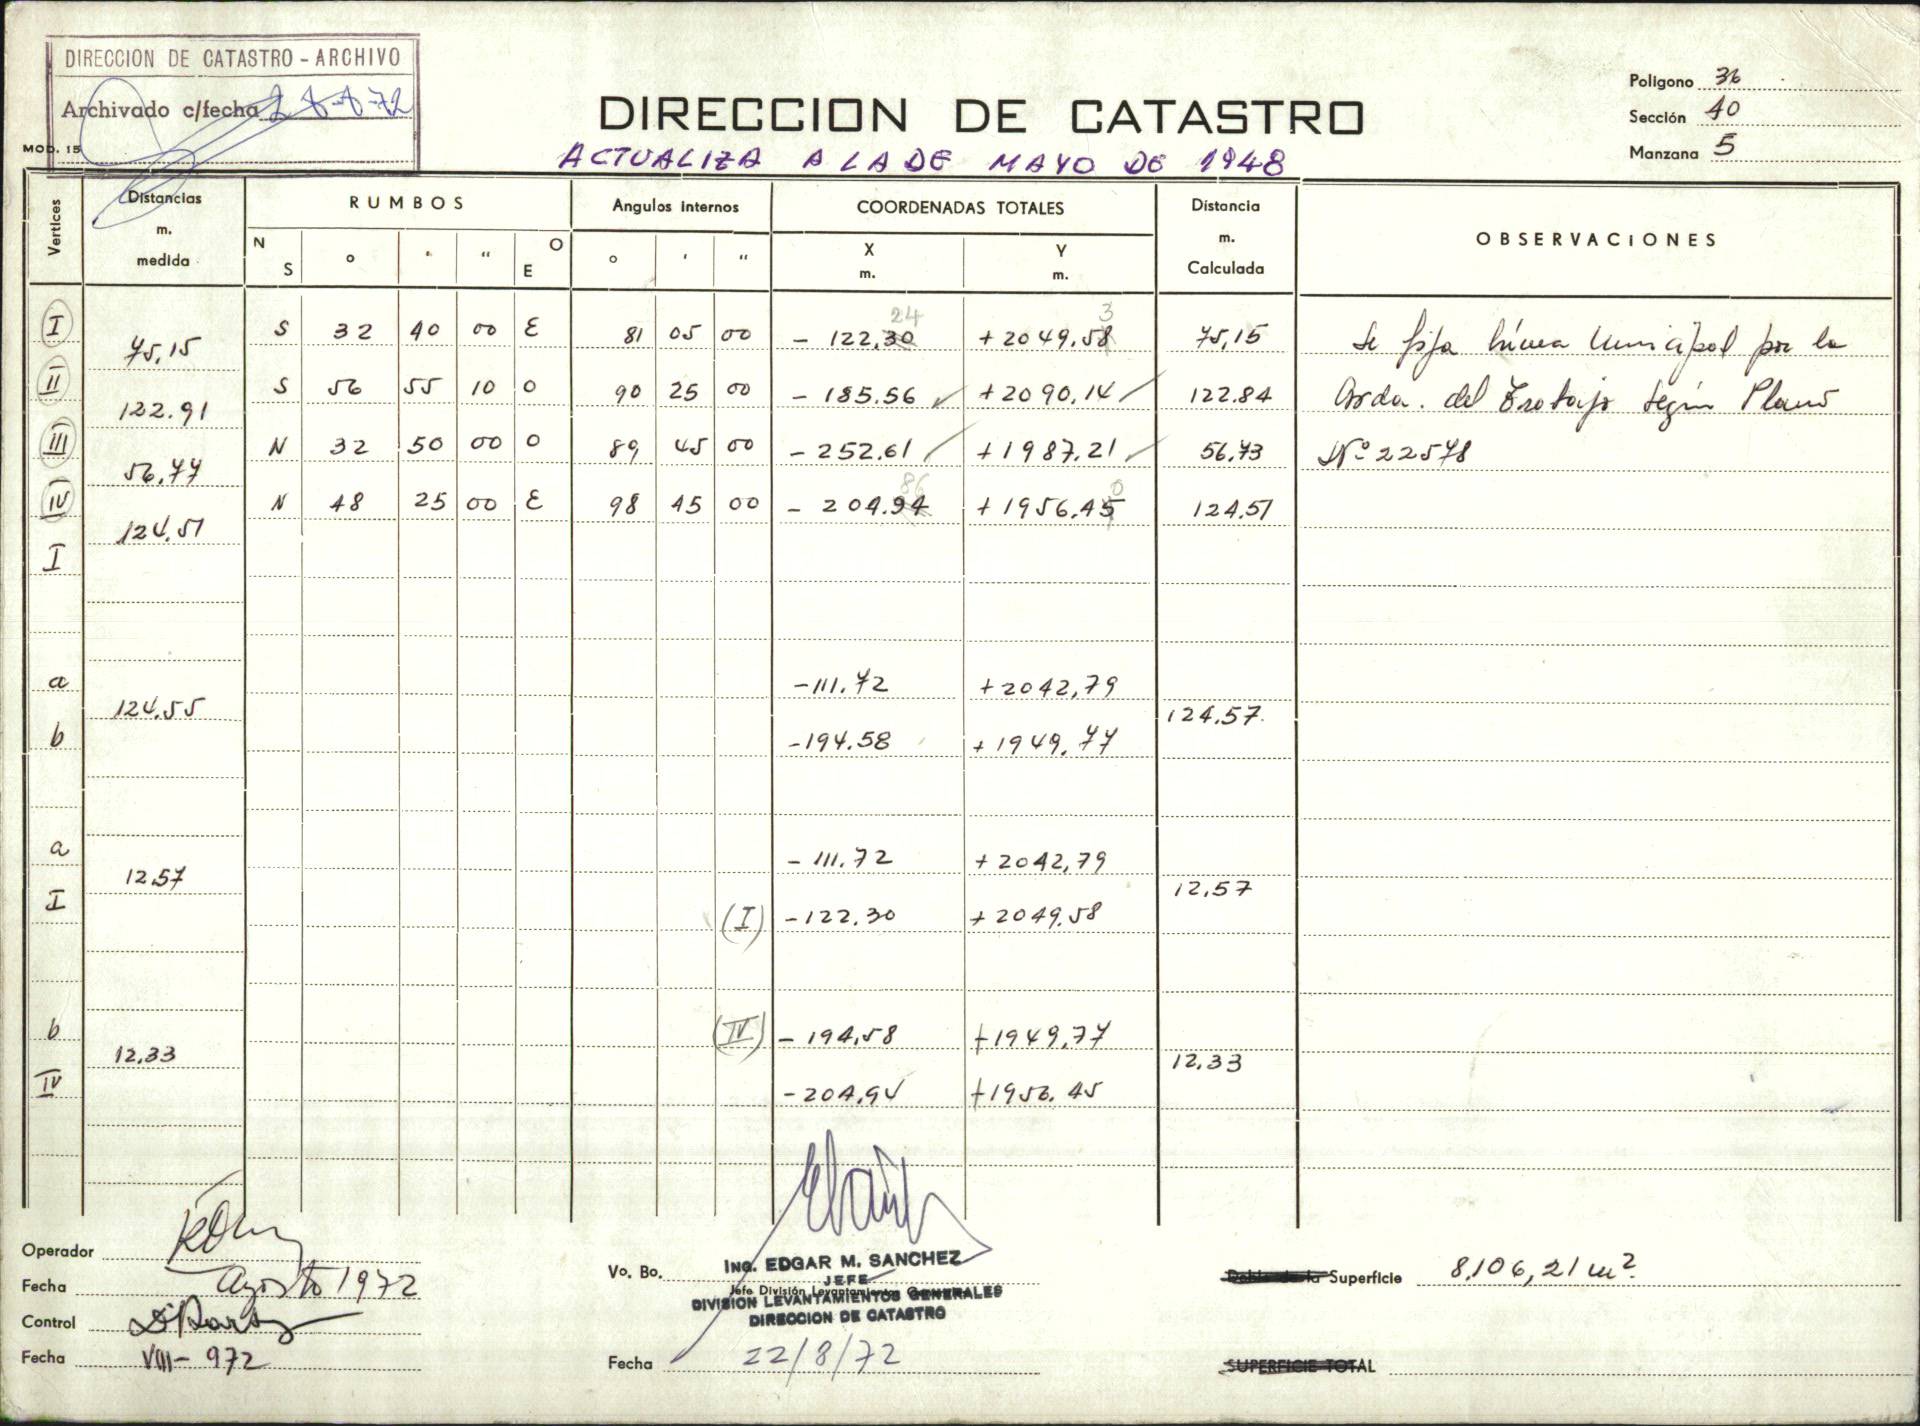 DIRECCION DE CATASTRO - ARCHIVO
Archivado c/fecha 28-8-72
MOD. 15
DIRECCION DE CATASTRO
ACTUALIZA A LA DE MAYO DE 1948
Poligono 36
Sección 40
Manzana 5
Vertices Distancias m. medida RUMBOS Angulos internos COORDENADAS TOTALES Distancia m. Calculada OBSERVACIONES
N S ° ' " O E ° ' " X m. Y m.
24 3
I S 32 40 00 E 81 05 00 - 122.30 + 2049.58 75,15 Se fija línea Municipal por la
75,15
II S 56 55 10 O 90 25 00 - 185.56 + 2090,14 122.84 Avda. del Trabajo según Plano
122.91
III N 32 50 00 O 89 45 00 - 252.61 + 1987.21 56,73 Nº 22578
56,77
86 0
IV N 48 25 00 E 98 45 00 - 204.94 + 1956.45 124.57
124.57
I
a -111.72 +2042,79
124.55 124.57
b -194.58 +1949.77
a - 111.72 + 2042,79
12.57 12,57
I (I) -122.30 + 2049.58
b (IV) - 194,58 +1949,77
12.33 12.33
IV -204,94 +1956.45
Operador
Fecha Agosto 1972
Control
Fecha VIII-972
Vo. Bo. Ing. EDGAR M. SANCHEZ
JEFE
Jefe División Levantamientos Generales
DIVISION LEVANTAMIENTOS GENERALES
DIRECCION DE CATASTRO
Fecha 22/8/72
Doble de la Superficie 8.106,21 m².
SUPERFICIE TOTAL